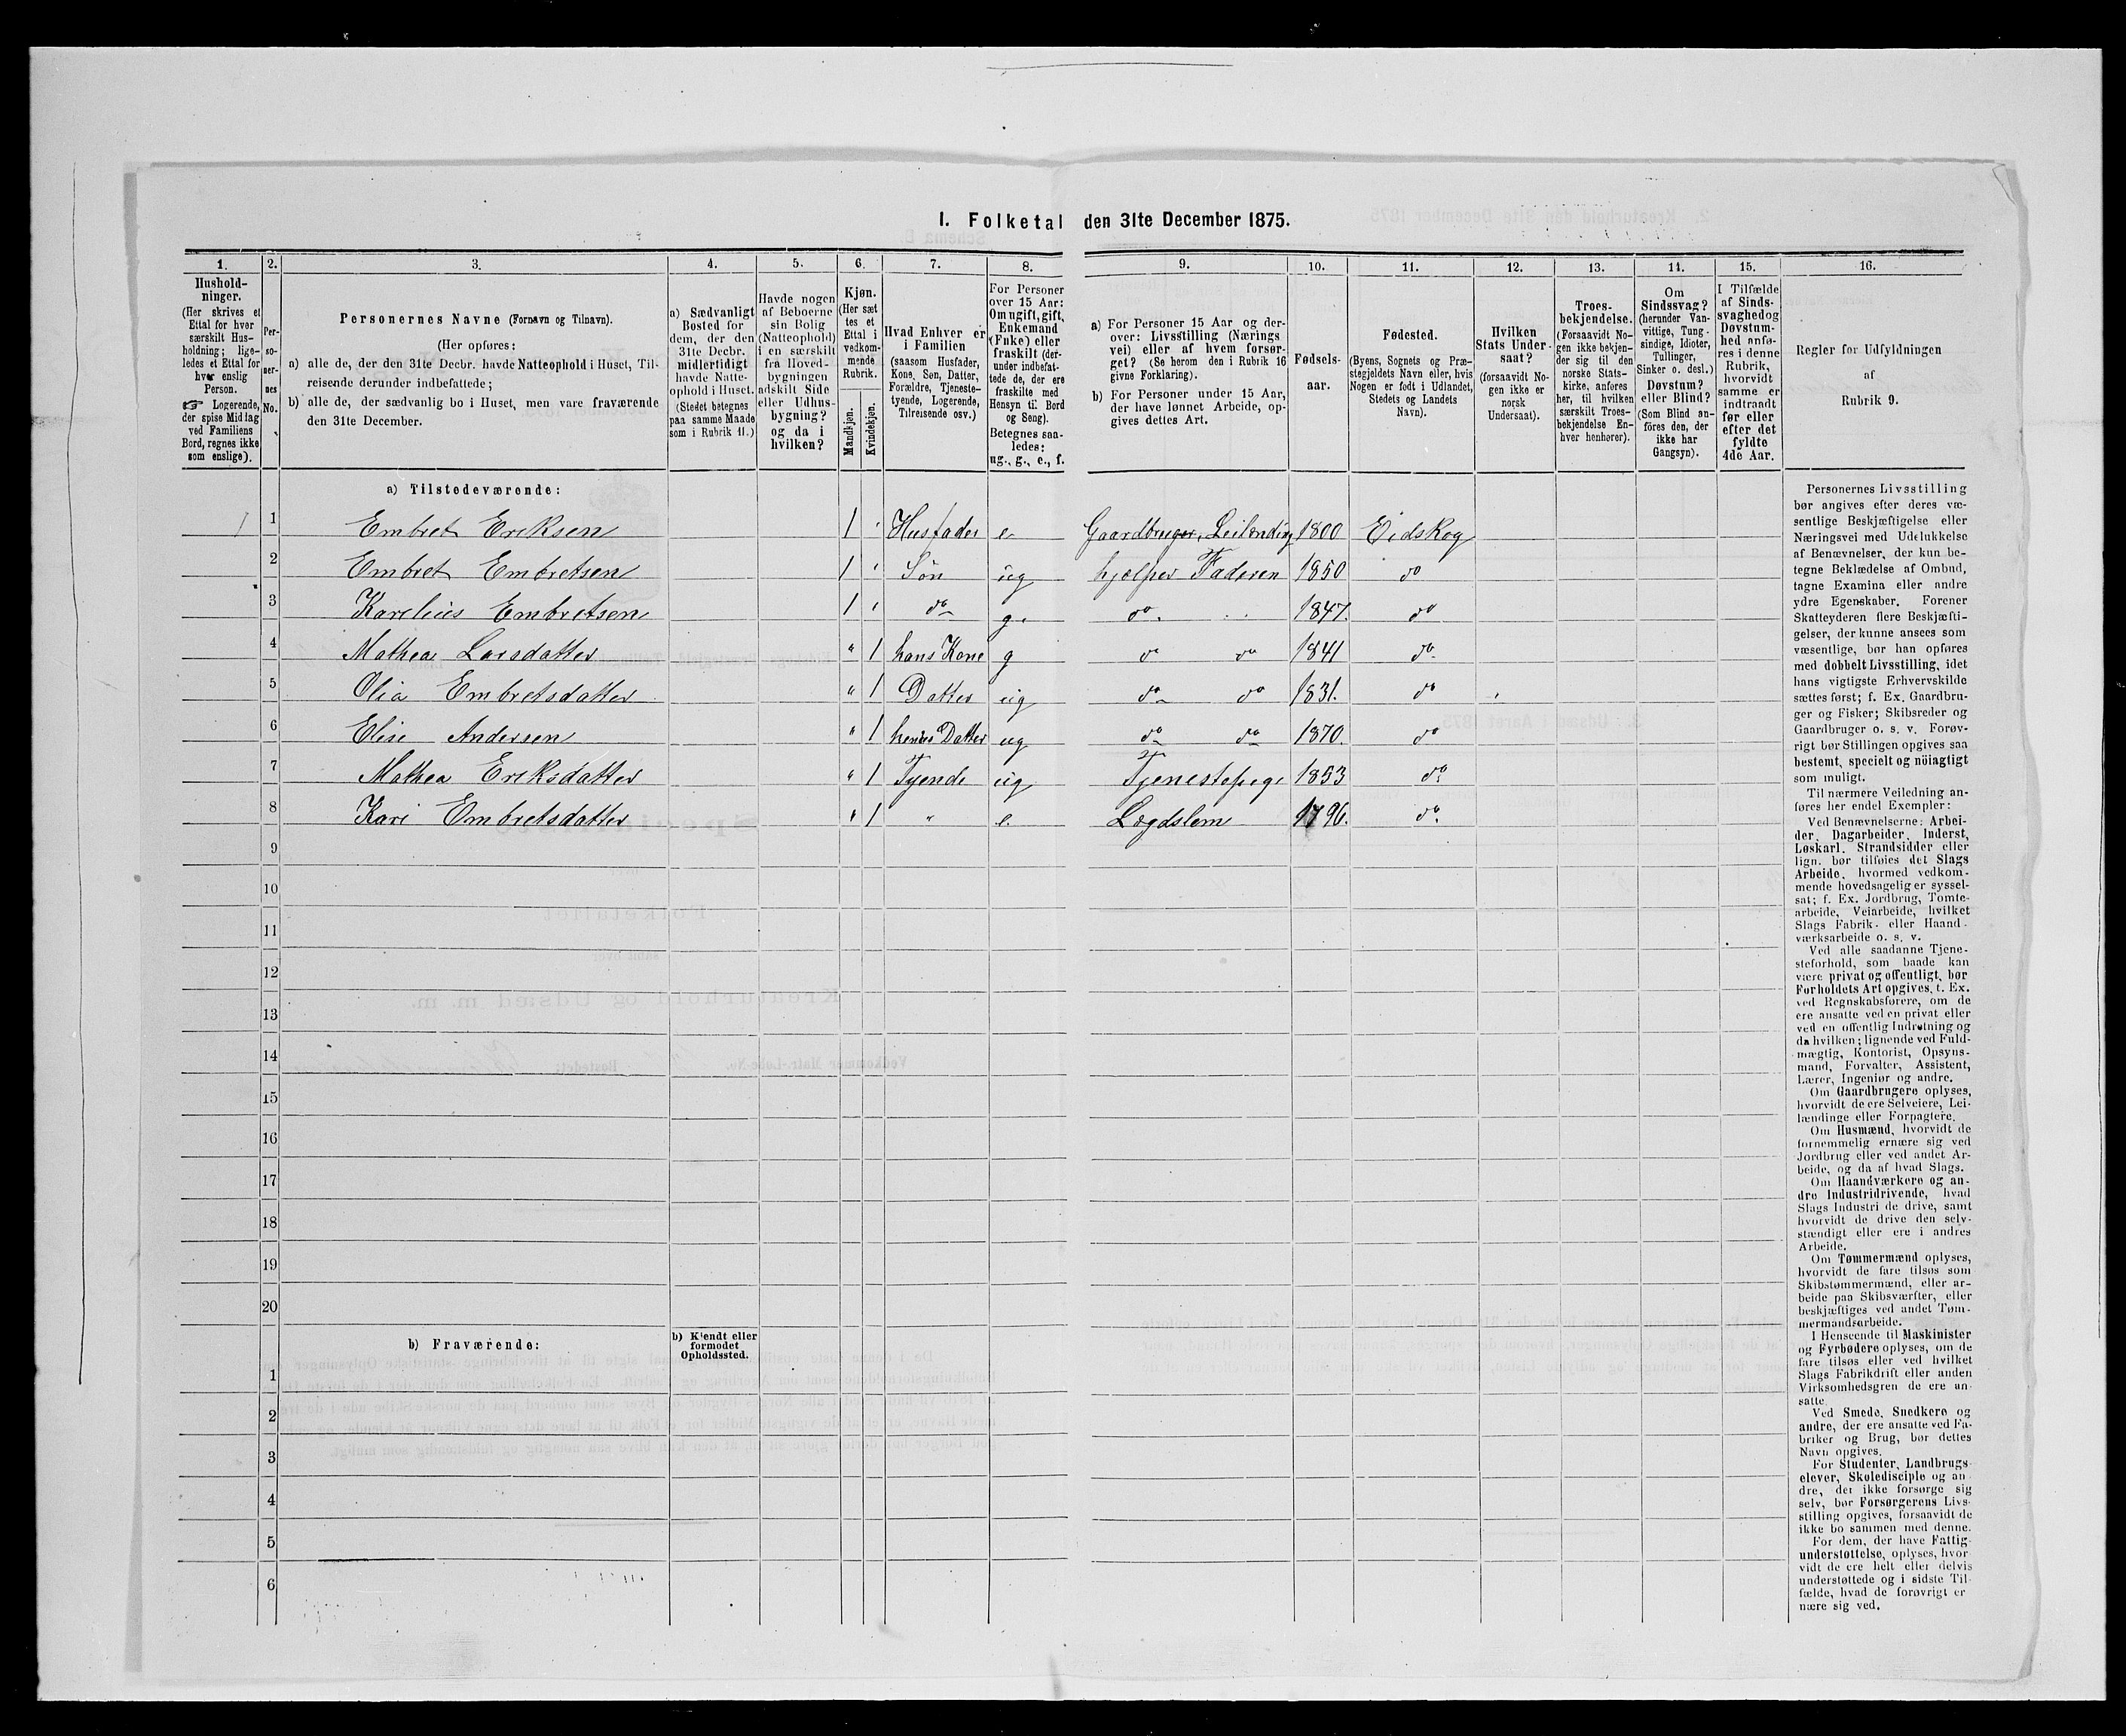 I. Folketal den 31te December 1875.
1. 2. 3. 4. 5. 6. 7. 8. 9. 10. 11. 12. 13. 14. 15. 16.
Hushold-
ninger.
(Her skrives et
Ettal for hver
særskilt Hus-
holdning; lige-
ledes et Ettal for
hver enslig
Person.
☞ Logerende,
der spise Middag
ved Familiens
Bord, regnes ikke
som enslige).
Per-
so-
ner-
nes
No.
Personernes Navne (Fornavn og Tilnavn).
(Her opføres:
a) alle de, der den 31te Decbr. havde Natteophold i Huset, Til-
reisende derunder indbefattede;
b) alle de, der sædvanlig bo i Huset, men vare fraværende
den 31te December.
a) Sædvanligt
Bosted for
dem, der den
31te Decbr.
midlertidigt
havde Natte-
ophold i Huset.
(Stedet betegnes
paa samme Maade
som i Rubrik 11.)
Havde nogen
af Beboerne
sin Bolig
(Natteophold)
i en særskilt
fra Hoved-
bygningen
adskilt Side
eller Udhus-
bygning?
og da i
hvilken?
Kjøn.
(Her sæt
tes et
Ettal i
vedkom-
mende
Rubrik.
Mandkjøn.
Kvindekjøn.
Hvad Enhver er
i Familien
(saasom Husfader,
Kone, Søn, Datter,
Forældre, Tjeneste-
tyende, Logerende,
Tilreisende osv.)
For Personer
over 15 Aar:
Om ugift, gift,
Enkemand
(Enke) eller
fraskilt (der-
under indbefat-
tede de, der ere
fraskilte med
Hensyn til Bord
og Seng).
Betegnes saa-
ledes:
ug., g., e., f.
a) For Personer 15 Aar og der-
over: Livsstilling (Nærings
vei) eller af hvem forsør-
get? (Se herom den i Rubrik 16
givne Forklaring).
b) For Personer under 15 Aar,
der have lønnet Arbeide, op-
gives dettes Art.
Fødsels-
aar.
Fødested.
(Byens, Sognets og Præ-
stegjeldets Navn eller, hvis
Nogen er født i Udlandet,
Stedets og Landets
Navn).
Hvilken
Stats Under-
saat?
(forsaavidt No-
gen ikke er
norsk
Undersaat).
Troes-
bekjendelse.
(Forsaavidt No-
gen ikke bekjen-
der sig til den
norske Stats-
kirke, anføres
her, til hvilken
særskilt Troes-
bekjendelse En-
hver henhører).
Om
Sindssvag?
(herunder Van-
vittige, Tung-
sindige, Idioter,
Tullinger,
Sinker o. desl.)
Døvstum?
eller Blind?
(Som Blind an-
føres den, der
ikke har
Gangsyn).
I Tilfælde
af Sinds-
svaghed og
Døvstum-
hed anfø-
res i denne
Rubrik,
hvorvidt
samme er
indtraadt
før eller
efter det
fyldte
4de Aar.
Regler for Udfyldningen
af
Rubrik 9.
a) Tilstedeværende:
1 1 Embret Eriksen 1 Husfader e Gaardbruger, Leilænding 1800 Eidskog
2 Embret Embretsen 1 Søn ug hjelper Faderen 1850 do
3 Karelius Embretsen 1 do g. do. 1847. do
4 Mathea Larsdatter " 1 hans Kone g do do 1841 do.
5 Olia Embretsdatter " 1 Datter ug do do 1831. do
6 Elise Andersen " 1 hendes Datter ug do do 1870. do
7 Mathea Eriksdatter " 1 Tyende ug Tjenestepige 1853 do.
8 Kari Embretsdatter " 1 " e. Lægdslem 1796. do.
9
10
11
12
13
14
15
16
17
18
19
20
b) Fraværende:
b) Kjendt eller
formodet
Opholdssted.
1
2
3
4
5
6
Personernes Livsstilling
bør angives efter deres væ-
sentlige Beskjæftigelse eller
Næringsvei med Udelukkelse
af Benævnelser, der kun be-
tegne Beklædelse af Ombud,
tagne Examina eller andre
ydre Egenskaber. Forener
Skatteyderen flere Beskjæfti-
gelser, der kunne ansees som
væsentlige, bør han opføres
med dobbelt Livsstilling, idet
hans vigtigste Erhvervskilde
sættes først; f. Ex. Gaardbru-
ger og Fisker; Skibsreder og
Gaardbruger o. s. v. Forøv-
rigt bør Stillingen opgives saa
bestemt, specielt og nöiagtigt
som muligt.
Til nærmere Veiledning an-
føres her endel Exempler:
Ved Benævnelserne: Arbei-
der, Dagarbeider, Inderst,
Løskarl, Strandsidder eller
lign. bør tilføies det Slags
Arbeide, hvormed vedkom-
mende hovedsagelig er syssel-
sat; f. Ex. Jordbrug, Tomte-
arbeide, Veiarbeide, hvilket
Slags Fabrik- eller Haand-
værksarbeide o. s. v.
Ved alle saadanne Tjene-
steforhold, som baade kan
være privat og offentligt, bør
Forholdets Art opgives, f. Ex.
ved Regnskabsførere, om de
ere ansatte ved en privat eller
ved en offentlig Indretning og
da hvilken; lignende ved Fuld-
mægtig, Kontorist, Opsyns-
mand, Forvalter, Assistent,
Lærer, Ingeniør og andre.
Om Gaardbrugere oplyses,
hvorvidt de ere Selveiere, Lei-
lændinge eller Forpagtere.
Om Husmænd, hvorvidt de
fornemmelig ernære sig ved
Jordbrug eller ved andet Ar-
beide, og da af hvad Slags.
Om Haandværkere og an-
dre Industridrivende, hvad
Slags Industri de drive, samt
hvorvidt de drive den selv-
stændigt eller ere i andres
Arbeide.
Om Tømmermænd oplyses,
hvorvidt de fare tilsøs som
Skibstømmermænd, eller ar-
beide paa Skibsværfter, eller
beskjæftiges ved andet Tøm-
mermandsarbeide.
I Henseende til Maskinister
og Fyrbødere oplyses, om de
fare tilsøs eller ved hvilket
Slags Fabrikdrift eller anden
Virksomhedsgren de ere an-
satte.
Ved Smede, Snedkere og
andre, der ere ansatte ved Fa-
briker og Brug, bør dettes
Navn opgives.
For Studenter, Landbrugs-
elever, Skoledisciple og an-
dre, der ikke forsørge sig
selv, bør Forsørgerens Livs-
stilling opgives, forsaavidt de
ikke bo sammen med denne.
For dem, der have Fattig-
understøttelse, oplyses, hvor-
vidt de ere helt eller delvis
understøttede og i sidste Til-
fælde, hvad de forøvrigt er-
nære sig ved.